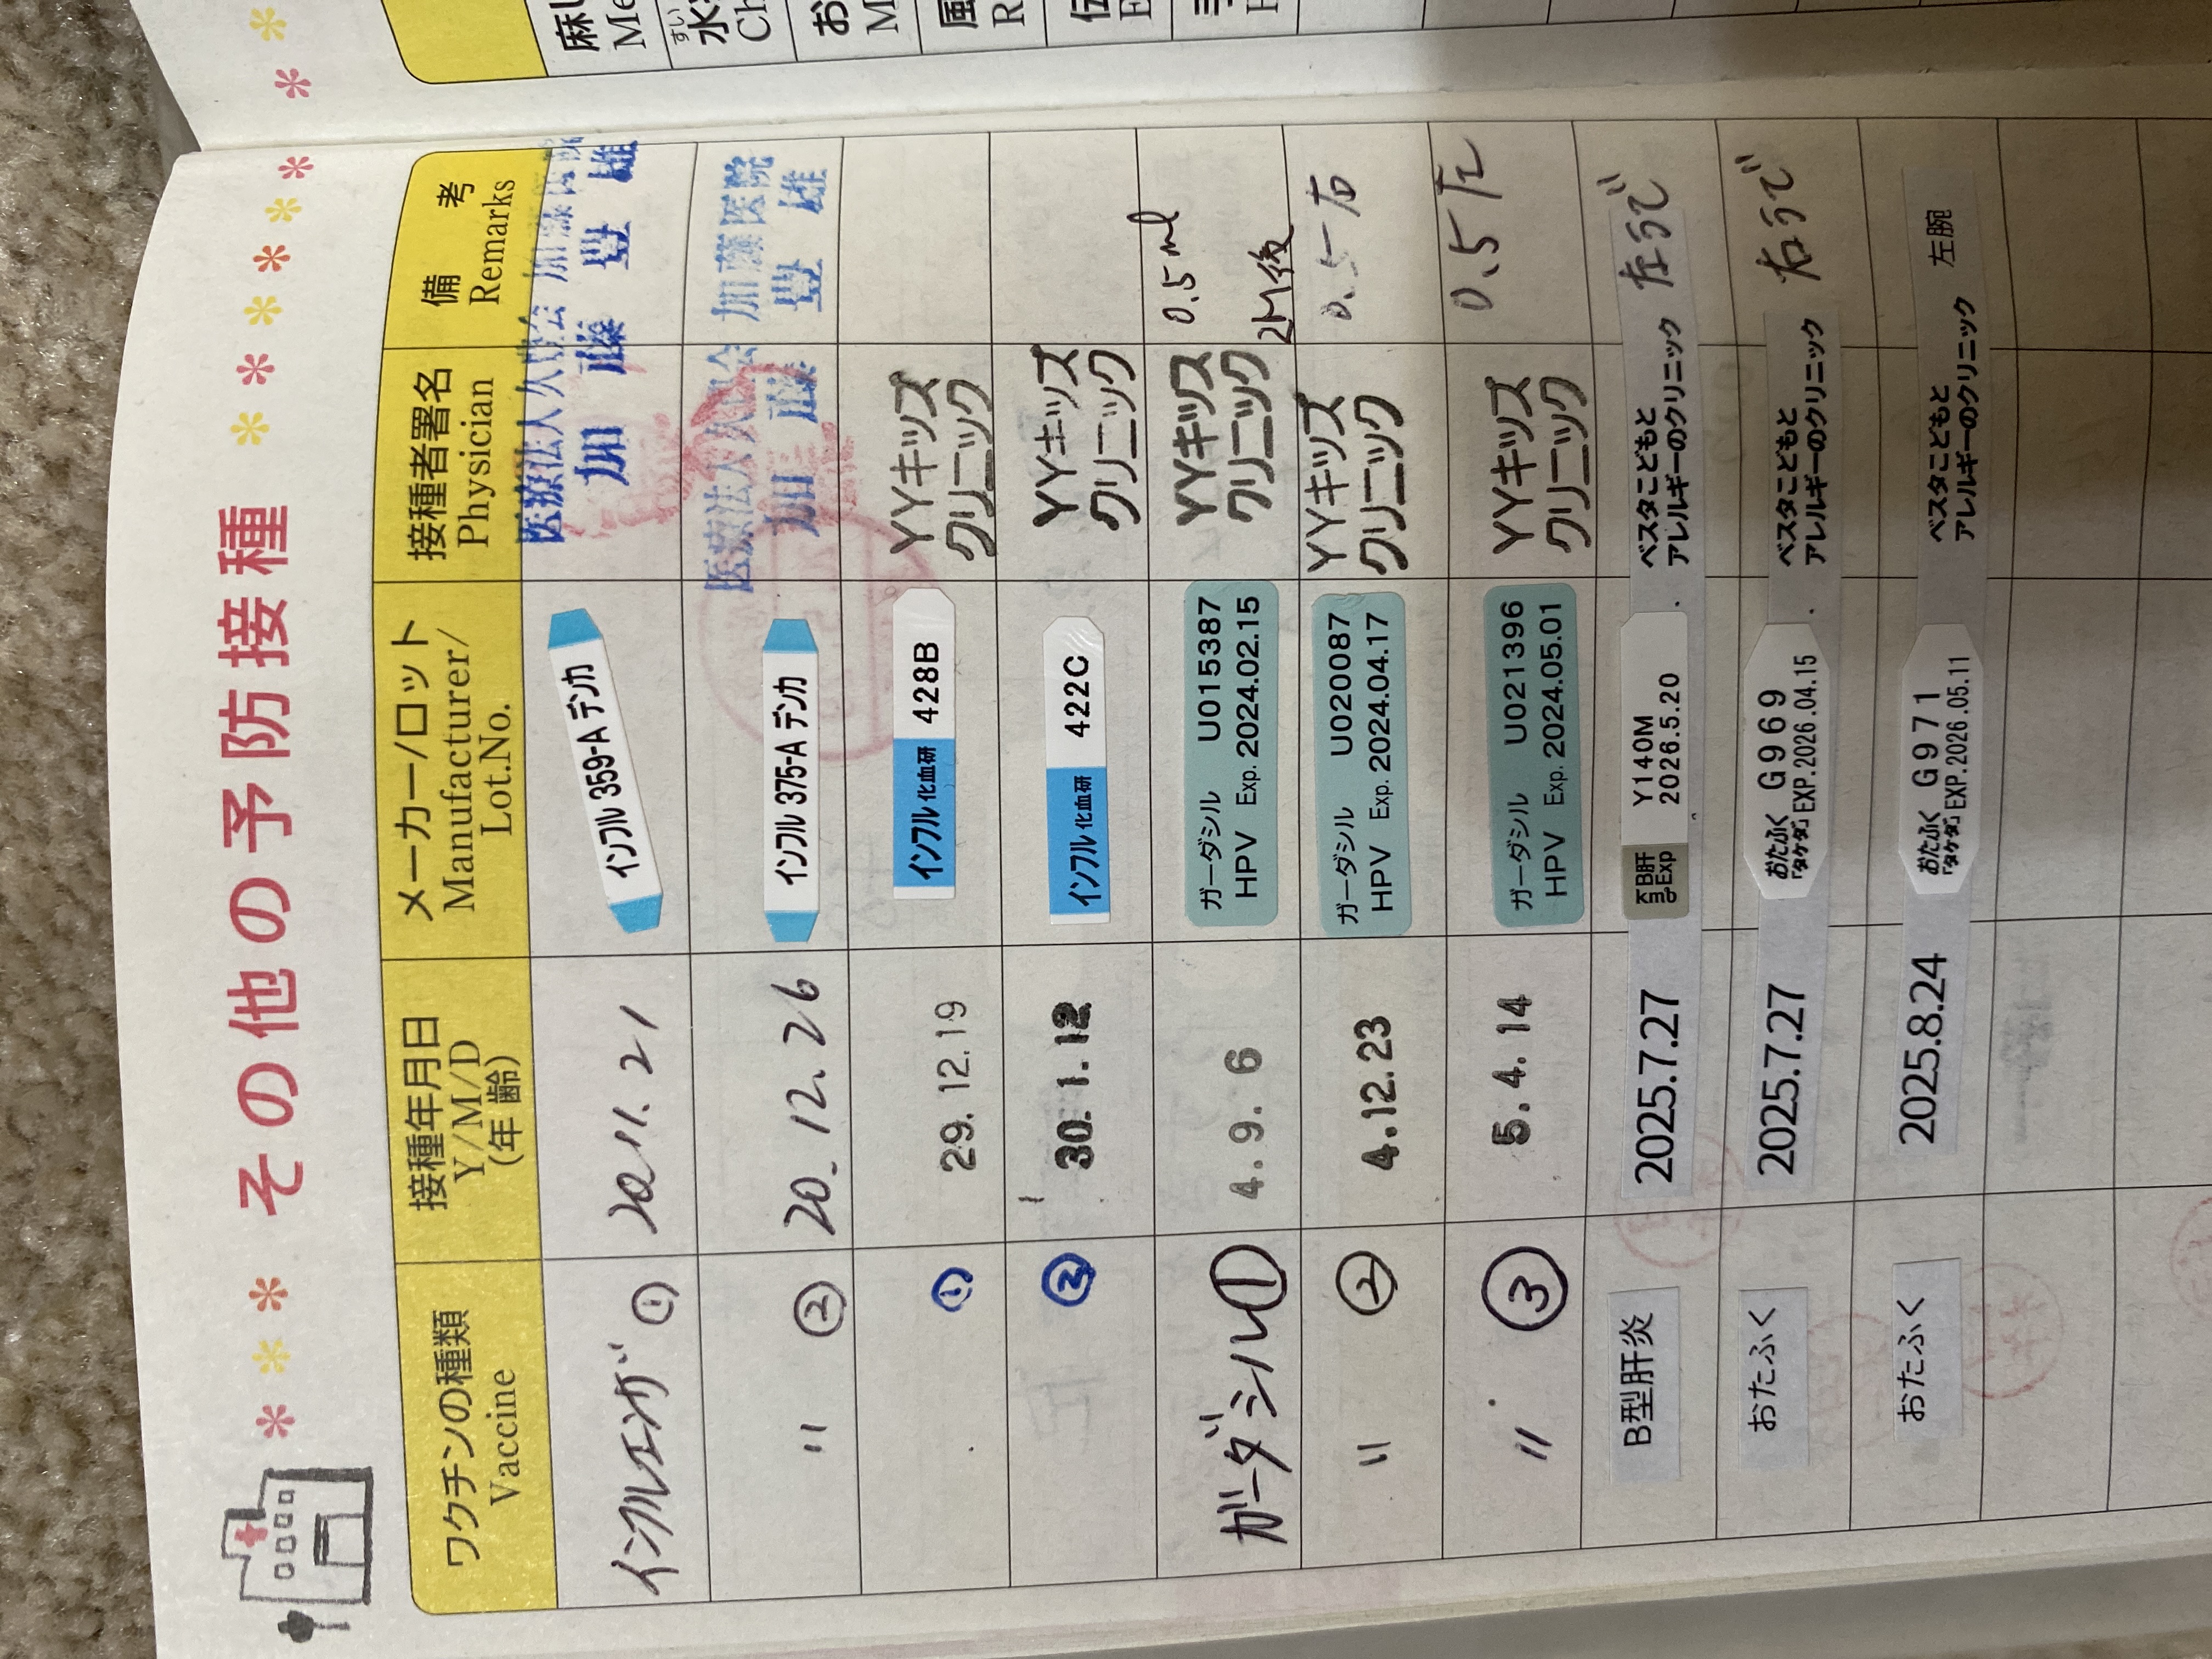 その他の予防接種
ワクチンの種類
Vaccine
接種年月日
Y/M/D
(年 齢)
メーカー/ロット
Manufacturer/
Lot.No.
接種者署名
Physician
備 考
Remarks
インフルエンザ ①
20.11.21
インフル 359-A デンカ
医療法人 加藤医院
加 藤 豊 雄
〃 ②
20.12.26
インフル 375-A デンカ
医療法人 加藤医院
加 藤 豊 雄
①
29.12.19
インフル 化血研 428B
YYキッズ
クリニック
②
30.1.12
インフル 化血研 422C
YYキッズ
クリニック
ガーダシル①
4.9.6
ガーダシル U015387
HPV Exp.2024.02.15
YYキッズ
クリニック
0.5ml
2M後
〃 ②
4.12.23
ガーダシル U020087
HPV Exp.2024.04.17
YYキッズ
クリニック
0.5 右
〃 ③
5.4.14
ガーダシル U021396
HPV Exp.2024.05.01
YYキッズ
クリニック
0.5 左
B型肝炎
2025.7.27
B肝 Y140M
Exp 2026.5.20
ベスタこどもと
アレルギーのクリニック
左うで
おたふく
2025.7.27
おたふく G969
「タケダ」EXP.2026.04.15
ベスタこどもと
アレルギーのクリニック
右うで
おたふく
2025.8.24
おたふく G971
「タケダ」EXP.2026.05.11
ベスタこどもと
アレルギーのクリニック
左腕